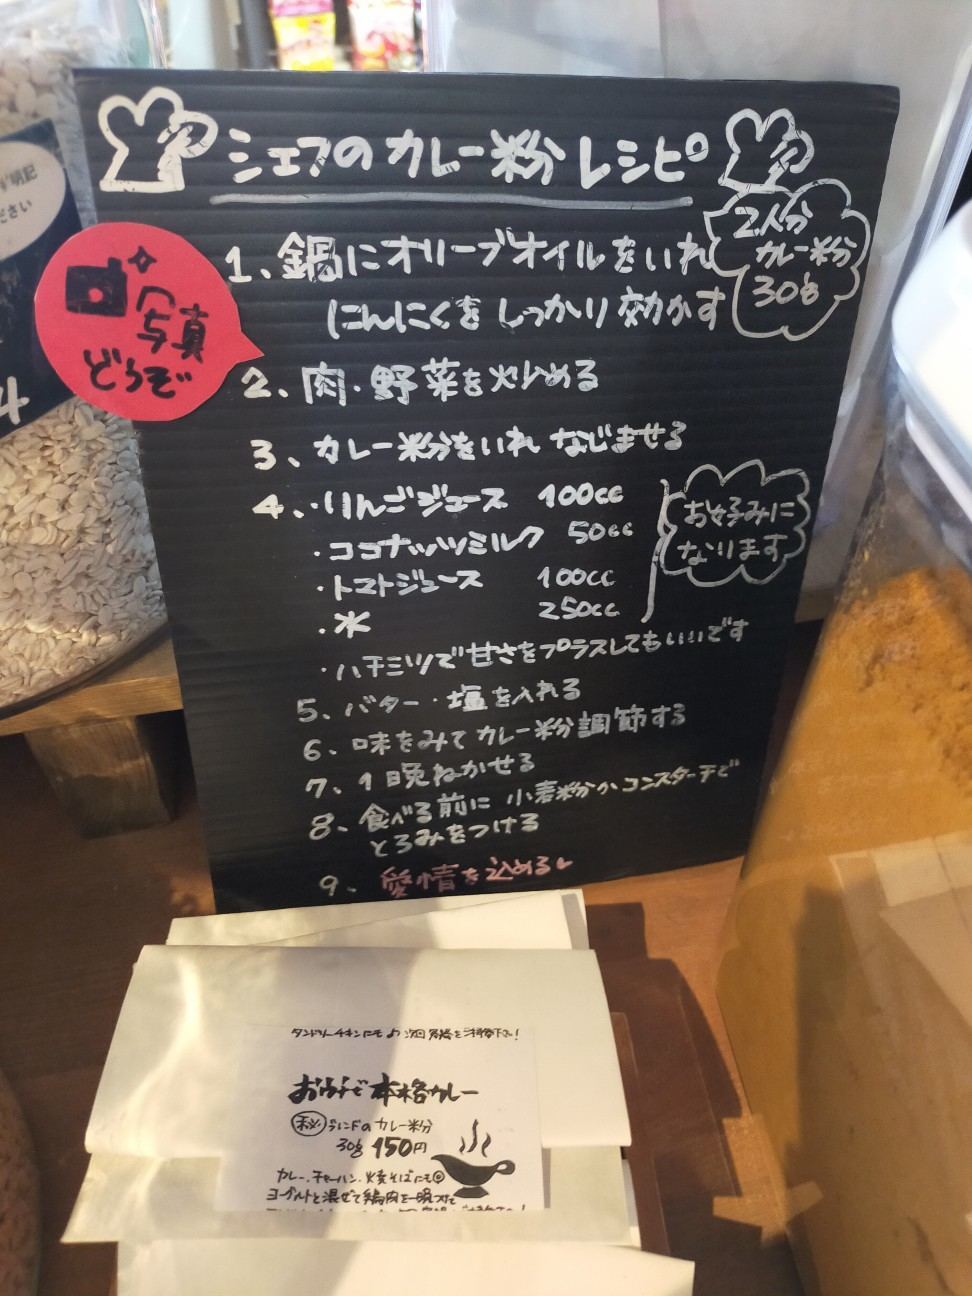 シェフのカレー粉レシピ
2人分
カレー粉
30g
写真
どうぞ
1、鍋にオリーブオイルをいれ
にんにくをしっかり効かす
2、肉・野菜を炒める
3、カレー粉をいれ なじませる
4、・りんごジュース 100cc
・ココナッツミルク 50cc
・トマトジュース 100cc
・水 250cc
お好みに
なります
・ハチミツで甘さをプラスしてもいいです
5、バター・塩を入れる
6、味をみてカレー粉調節する
7、1晩ねかせる
8、食べる前に小麦粉かコンスターチで
とろみをつける
9、愛情を込める
明記
ださい
4
タンドリーチキンにも♪
おウチで本格カレー
秘ブレンドのカレー粉
30g 150円
カレー、チャーハン、焼そばにも◎
ヨーグルトと混ぜて鶏肉を一晩つけて